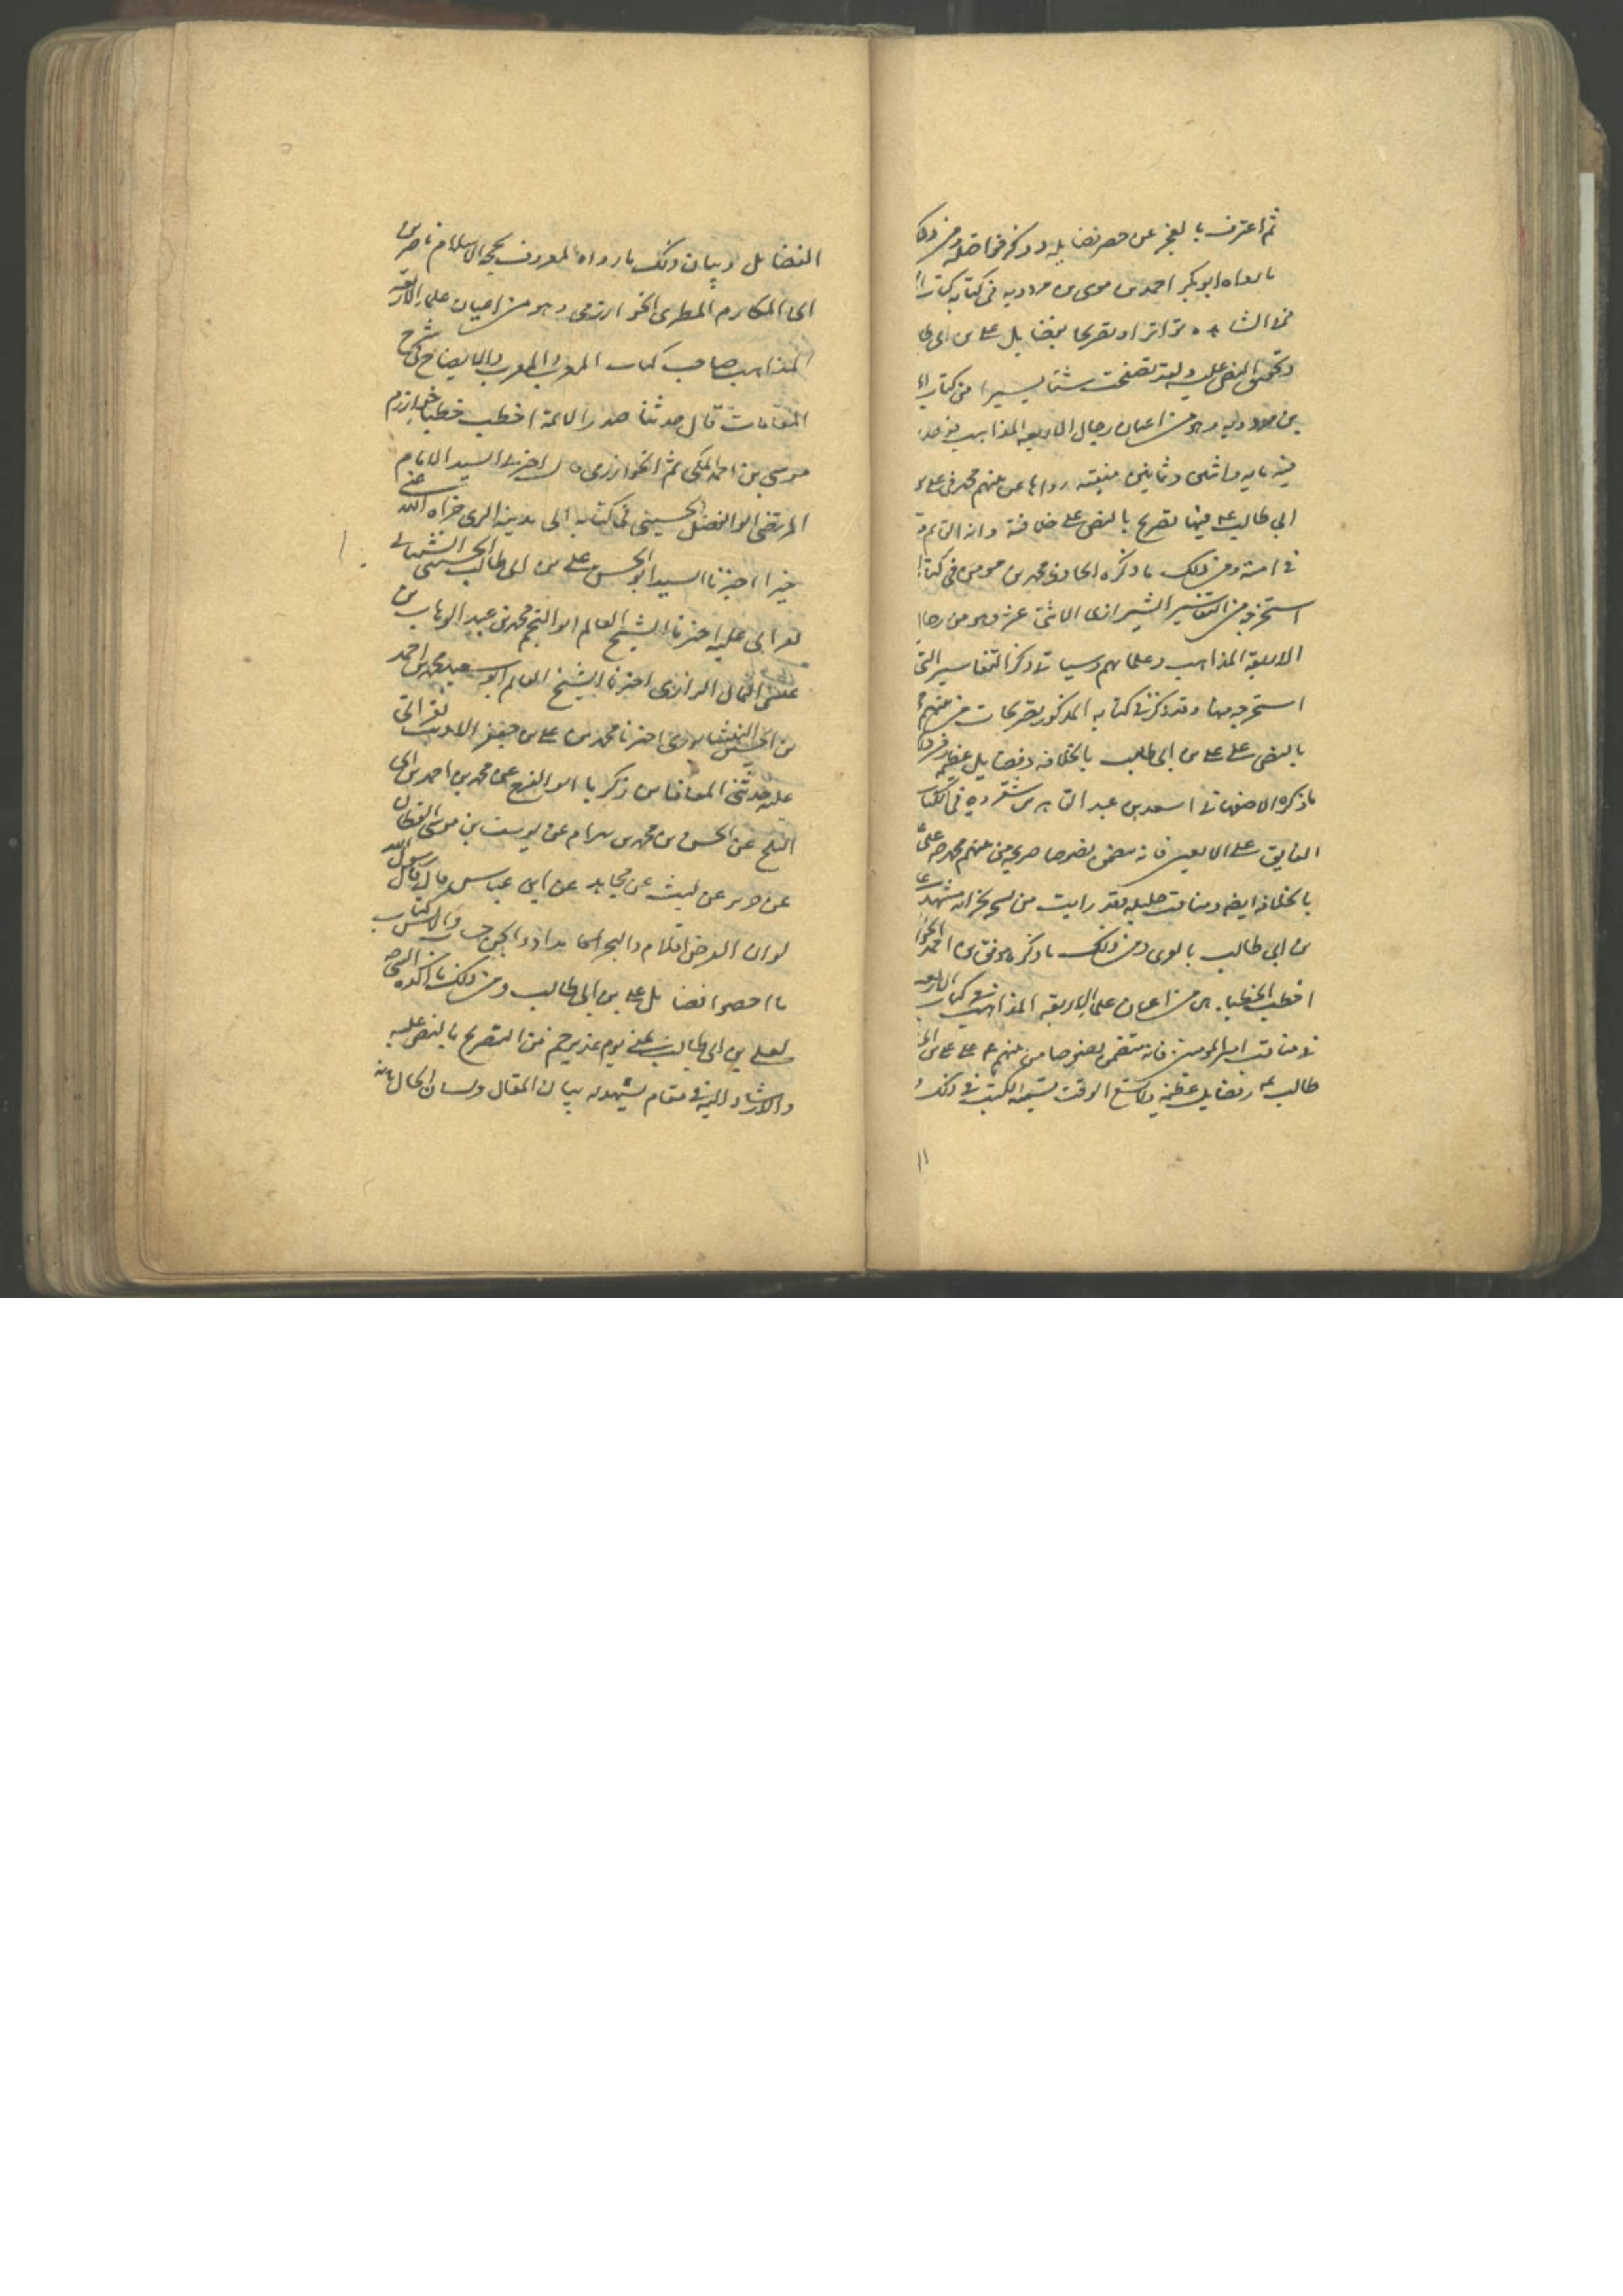 ثم اعترف بالعجز عن حصر فضايله وذكر فواضله ومن ذلك
ما رواه ابو بكر احمد بن موسى بن مردويه فى كتابه
تواترا وتصريحا بفضايل على بن ابى طا
وتحقيق النص عليه ولقد تصفحت شيئا يسيرا من كتاب
بن مردويه وهو من اعيان رجال الاربعة المذاهب فوجد
فيه مايه واثنتين وثمانين منقبته رواها عن نبيهم محمد فى على
ابى طالب ع فيها تصريح بالنص على خلافته وانه القايم
فى امته ومن ذلك ما ذكره الحافظ محمد بن مومن فى كتاب
استخرجه من التفاسير الشيرازى الاثنى عشر وهو من رجال
الاربعة المذاهب وعلمائهم وسياتى ذكر التفاسير التى
استخرجه منها وقد ذكر فى كتابه المذكور تصريحات من نبيهم
بالنص على على بن ابى طالب بالخلافة وفضايل عظيمة ومن ذلك
ما ذكره الاصفهانى اسعد بن عبد القاهر بن شفروه فى كتاب
الفايق على الاربعين فانه يتضمن نصوصا صريحة من نبيهم محمد ص على
بالخلافة ايضا ومناقب جليله فقد رايت من نسخه بخزانه مشهد على
بن ابى طالب بالغرى ومن ذلك ما ذكره موفق بن احمد الخوا
اخطب الخطباء من اعيان علماء الاربعة المذاهب فى كتاب الاربعين
فى مناقب امير المومنين فانه يتضمن نصوصا من نبيهم ع على على بن ابى
طالب ع وفضايل عظيمة ولا يتسع الوقت لتسمية الكتب فى ذلك و
١١
الفضايل وبيان ذلك ما رواه المعروف بحجة الاسلام ناصر بن
ابى المكارم المطرزى الخوارزمى وهو من اعيان علماء الاربعة
المذاهب صاحب كتاب المغرب والمعرب والايضاح فى شرح
المقامات قال حدثنا صدر الائمة اخطب خطباء خوارزم
موسى بن احمد المكى ثم الخوارزمى قال اخبرنا السيد الامام
المرتضى ابو الفضل الحسينى فى كتابه الى مدينة الرى جزاه الله عنى
خيرا اخبرنا السيد ابو الحسن على بن ابى طالب الحسينى الشيبانى
بقراتى عليه اخبرنا الشيخ العالم ابو النجم محمد بن عبد الوهاب بن
عيسى السمان الرازى اخبرنا الشيخ العالم ابو سعيد محمد بن احمد
بن الحسين النيشابورى اخبرنا محمد بن على بن جعفر الاديب بقراتى
عليه حدثنى المعافا بن زكريا ابو الفرج عن محمد بن احمد بن ابى
الثلج عن الحسن بن محمد بن بهرام عن يوسف بن موسى القطان
عن جرير عن ليث عن مجاهد عن ابن عباس قال قال رسول الله
لو ان الغياض اقلام والبحر مداد والجن حساب والانس كتاب
ما احصوا فضايل على بن ابى طالب ومن ذلك ما اكده النبى ص
لعلى بن ابى طالب بمنى يوم غدير خم من التصريح بالنص عليه
والارشاد اليه فى مقام يشهد له بيان المقال ولسان الحال بانه